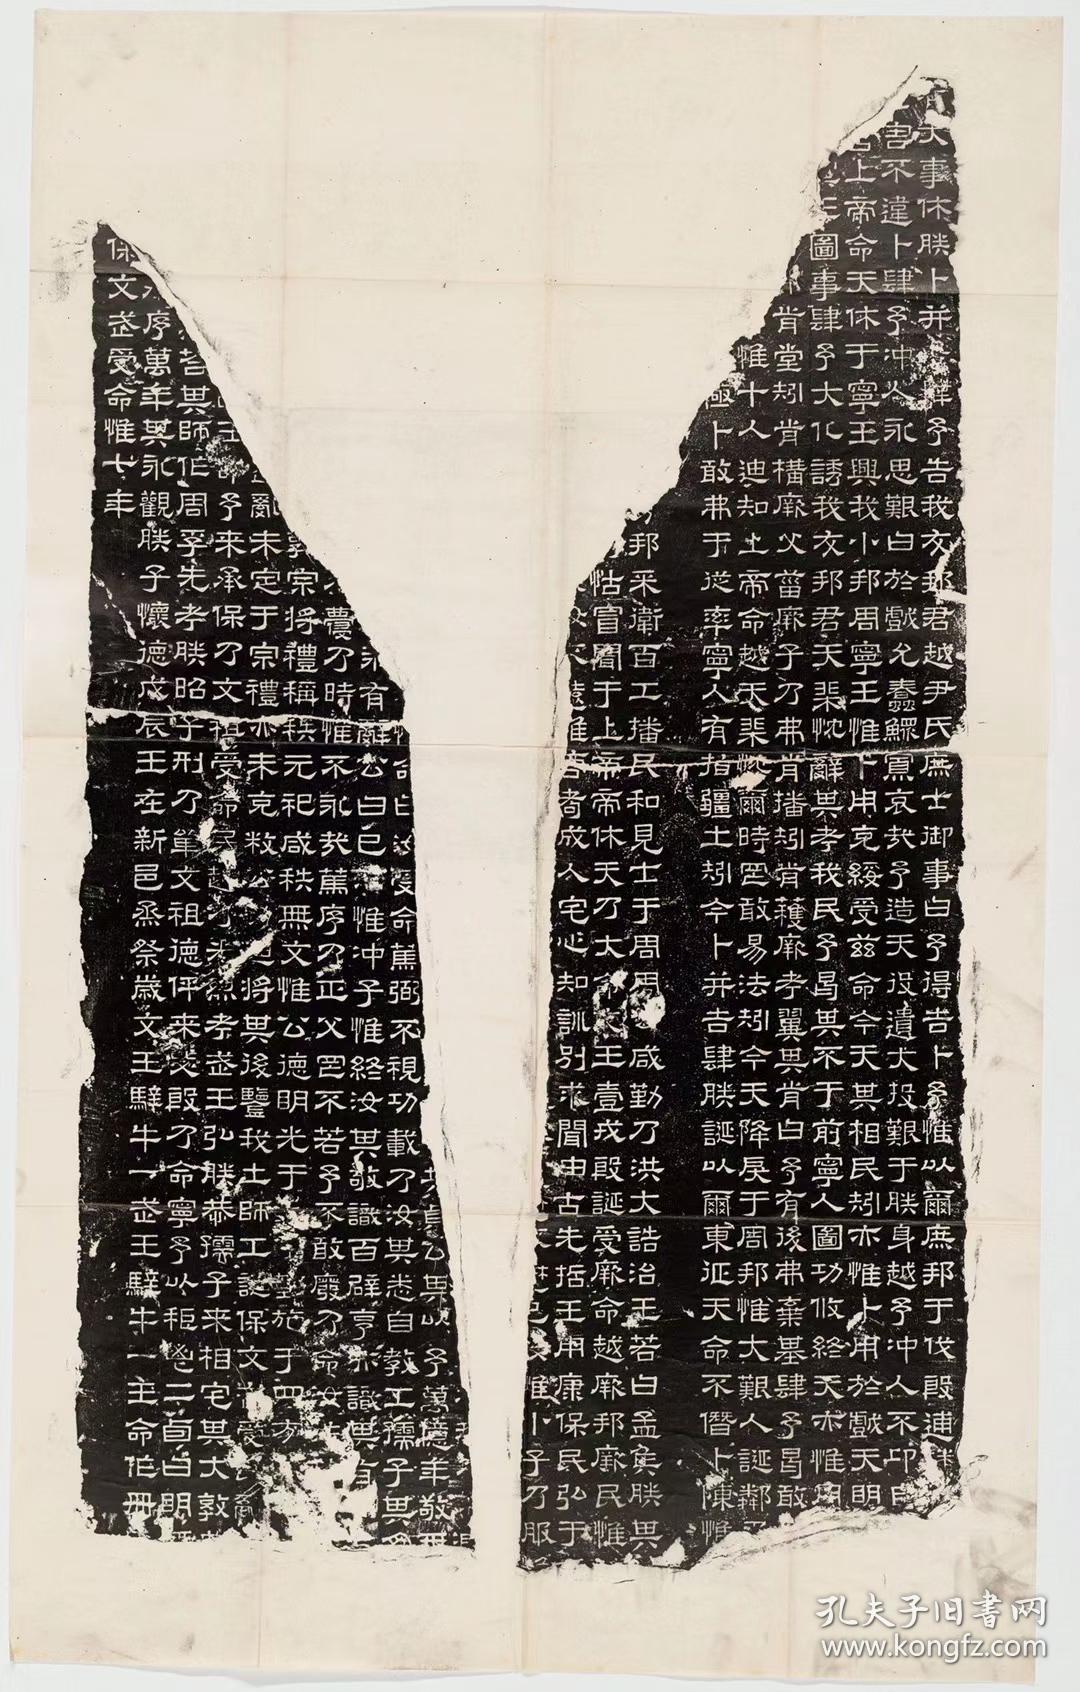 大事休朕卜并 肆予告我友邦君越尹氏庶士御事曰予得吉卜予惟以爾庶邦于伐殷逋
害不違卜肆予沖人永思艱曰於戲允蠢鰥寡哀哉予造天役遺大投艱于朕身越予沖人不卬自
上帝命天休于寧王興我小邦周寧王惟卜用克綏受茲命今天其相民矧亦惟卜用於戲天明
王圖事肆予大化誘我友邦君天棐忱辭其考我民予曷其不于前寧人圖功攸終天亦惟用
肯堂矧肯構厥父菑厥子乃弗肯播矧肯穫厥考翼其肯曰予有後弗棄基肆予曷敢
惟十人迪知上帝命越天棐忱爾時罔敢易法矧今天降戾于周邦惟大艱人誕鄰
極卜敢弗于從率寧人有指疆土矧今卜并吉肆朕誕以爾東征天命不僭卜陳惟
邦采衛百工播民和見士于周周 咸勤乃洪大誥治王若曰孟侯朕其
怙冒聞于上帝帝休天乃大命 王壹戎殷誕受厥命越厥邦厥民惟
遠惟商耇成人宅心知訓別求聞由古先哲王用康保民弘于
惟小子乃服
公其以予萬億年敬天
曰汝受命篤弼丕視功載乃汝其悉自教工孺子其
有辭公曰已 惟沖子惟終汝其敬識百辟享亦識其有
乃時惟不永哉篤序乃正父罔不若予不敢廢乃命汝
惇宗將禮稱秩元祀咸秩無文惟公德明光于 施于四方
亂未定于宗禮亦未克敉公 將其後監我士師工誕保文武受
王命予來承保乃文祖受命民越乃光烈考武王弘朕恭孺子來相宅其大惇
其師作周孚先考朕昭子刑乃單文祖德伻來毖殷乃命寧予以秬鬯二卣曰明禋
序萬年其永觀朕子懷德戊辰王在新邑烝祭歲文王騂牛一武王騂牛一王命作冊
保文武受命惟七年
孔夫子旧书网
www.kongfz.com